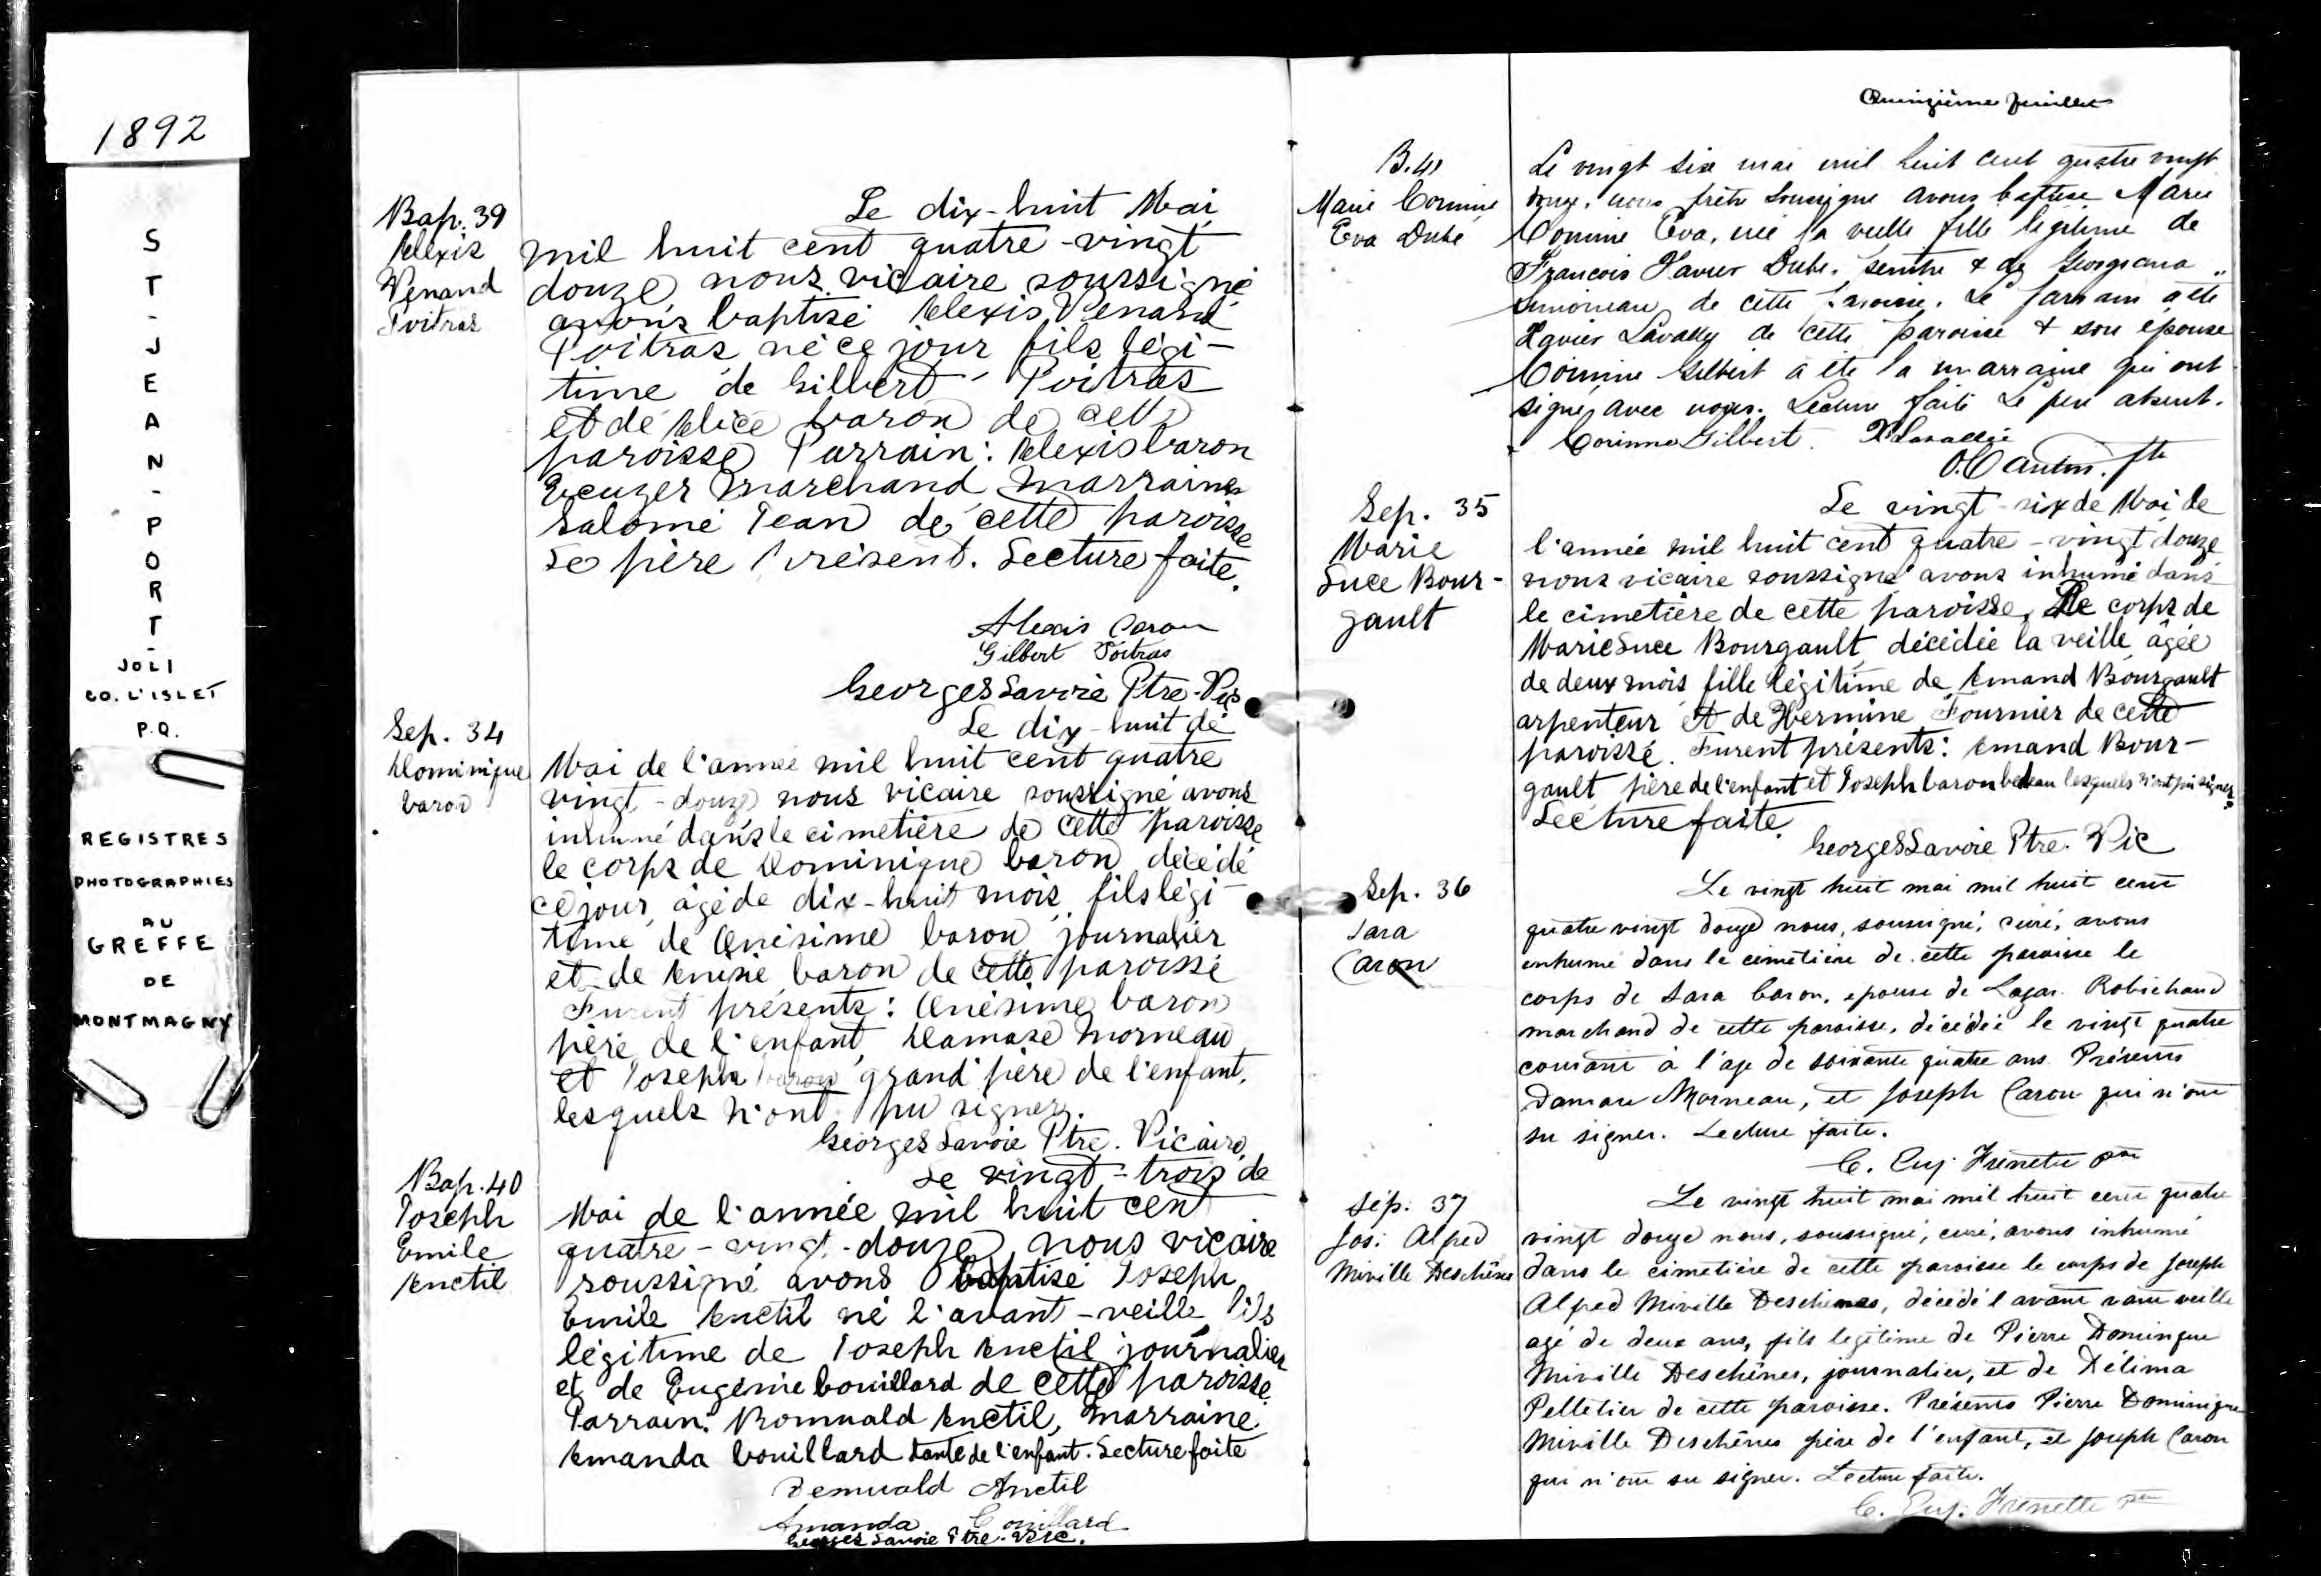 1892
ST-JEAN-PORT-
JOLI
CO. L'ISLET
P.Q.
REGISTRES
PHOTOGRAPHIES
AU
GREFFE
DE
MONTMAGNY
Bap. 39
Alexis
Venand
Poitras
Le dix-huit Mai
mil huit cent quatre-vingt
douze nous vicaire soussigné
avons baptisé Alexis Venand
Poitras né ce jour fils légi-
time de Gilbert Poitras
et de Alice Caron de cette
paroisse Parrain: Alexis Caron
marchand marraine
Salomé Jean de cette paroisse
Le père présent. Lecture faite.
Alexis Caron
Gilbert Poitras
Georges Savoie Ptre-Vic
Sep. 34
Dominique
Caron
Le dix-huit de
Mai de l'année mil huit cent quatre
vingt-douze nous vicaire soussigné avons
inhumé dans le cimetière de cette paroisse
le corps de Dominique Caron décédé
ce jour, âgé de dix-huit mois, fils légi-
time de Onésime Caron journalier
et de Caron de cette paroisse
Furent présents: Onésime Caron
père de l'enfant, Damase Morneau
et Joseph Caron grand'père de l'enfant,
lesquels n'ont pu signer.
Georges Savoie Ptre. Vicaire
Bap. 40
Joseph
Emile
Anctil
Le vingt-trois de
Mai de l'année mil huit cent
quatre-vingt-douze, nous vicaire
soussigné avons baptisé Joseph
Emile Anctil né l'avant-veille, fils
légitime de Joseph Anctil journalier
et de Eugénie Couillard de cette paroisse
Parrain: Romuald Anctil, marraine
Amanda Couillard tante de l'enfant. Lecture faite
Romuald Anctil
Amanda Couillard
Georges Savoie Ptre. Vic.
Quinzième feuillet
B. 41
Marie Corinne
Eva Dubé
Le vingt six mai mil huit cent quatre vingt
douze, nous prêtre soussigné avons baptisé Marie
Corinne Eva, née la veille fille légitime de
Francois Xavier Dubé, & de Georgiana
de cette paroisse. Le parrain a été
Xavier Lavallée de cette paroisse & son épouse
Corinne Gilbert a été la marraine qui ont
signé avec nous. Lecture faite Le père absent.
Corinne Gilbert. X Lavallée
Sep. 35
Marie
Luce Bour-
gault
Le vingt-six de Mai de
l'année mil huit cent quatre-vingt douze
nous vicaire soussigné avons inhumé dans
le cimetière de cette paroisse, le corps de
Marie Luce Bourgault, décédée la veille, âgée
de deux mois fille légitime de Amand Bourgault
arpenteur et de Hermine Fournier de cette
paroisse. Furent présents: Amand Bour-
gault père de l'enfant et Joseph Caron bedeau lesquels n'ont pu signer.
Lecture faite.
Georges Savoie Ptre. Vic
Sep. 36
Sara
Caron
Le vingt huit mai mil huit cent
quatre vingt douze nous, soussigné, curé, avons
enhumé dans le cimetière de cette paroisse le
corps de Sara Caron, epouse de Lazar Robichaud
marchand de cette paroisse, décédée le vingt quatre
courant à l'age de soixante quatre ans. Présents
Damase Morneau, et Joseph Caron qui n'ont
su signer. Lecture faite.
C. Euj. Frenette ptre
Sép. 37
Jos. Alfred
Miville Deschênes
Le vingt huit mai mil huit cent quatre
vingt douze nous, soussigné, curé, avons inhumé
dans le cimetière de cette paroisse le corps de Joseph
Alfred Miville Deschênes, décédé l'avant veille
agé de deux ans, fils legitime de Pierre Dominque
Miville Deschênes, journalier, et de Délima
Pelletier de cette paroisse. Présents Pierre Dominique
Miville Deschênes père de l'enfant, et Joseph Caron
qui n'ont su signer. Lecture faite.
C. Euj. Frenette ptre